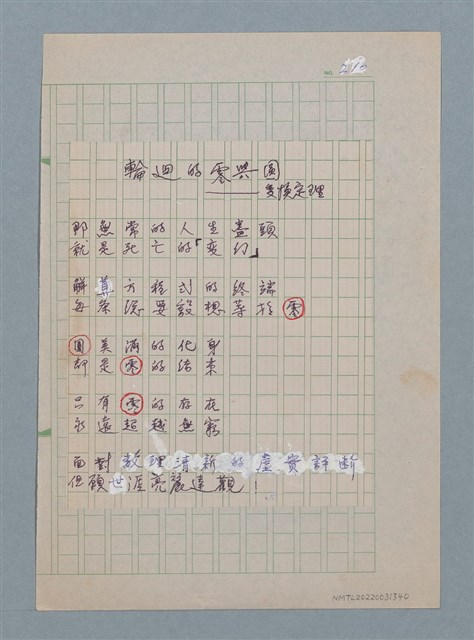 NO. 213
輪迴的零與圓
——變換定理
那無常的人生盡頭
就是死亡的「變幻」
解算方程式的終端
每條總要設想等於零
圓美滿的化身
卻是零的結束
只有零的存在
永遠超越無窮
面對數理清新的虛實評斷
但願世涯亮麗達觀！
NMTL20220031340